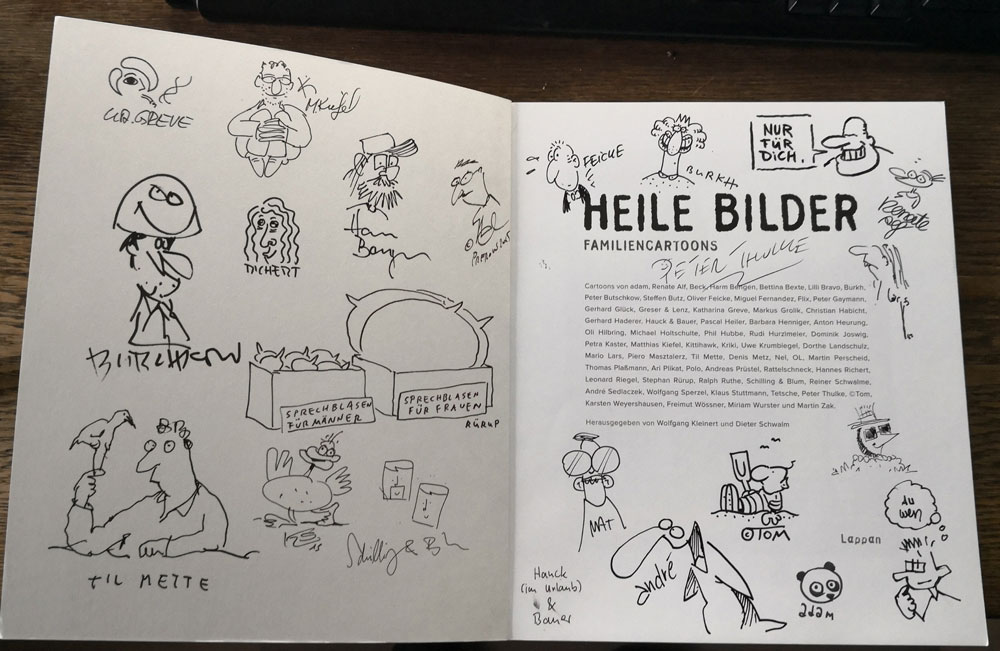 K. GREVE
MKiefel
Harm
Bengen
RICHERT
©
BUTSCHKOW
SPRECHBLASEN
FÜR MÄNNER
SPRECHBLASEN
FÜR FRAUEN
RÜRUP
TIL METTE
Schilling & Bl
FEICKE
BURKH
NUR
FÜR
DICH.
Renate
Alf
HEILE BILDER
FAMILIENCARTOONS
PETER THULKE
Lars
Cartoons von adam, Renate Alf, Beck, Harm Bengen, Bettina Bexte, Lilli Bravo, Burkh,
Peter Butschkow, Steffen Butz, Oliver Feicke, Miguel Fernandez, Flix, Peter Gaymann,
Gerhard Glück, Greser & Lenz, Katharina Greve, Markus Grolik, Christian Habicht,
Gerhard Haderer, Hauck & Bauer, Pascal Heiler, Barbara Henniger, Anton Heurung,
Oli Hilbring, Michael Holtschulte, Phil Hubbe, Rudi Hurzlmeier, Dominik Joswig,
Petra Kaster, Matthias Kiefel, Kittihawk, Kriki, Uwe Krumbiegel, Dorthe Landschulz,
Mario Lars, Piero Masztalerz, Til Mette, Denis Metz, Nel, OL, Martin Perscheid,
Thomas Plaßmann, Ari Plikat, Polo, Andreas Prüstel, Rattelschneck, Hannes Richert,
Leonard Riegel, Stephan Rürup, Ralph Ruthe, Schilling & Blum, Reiner Schwalme,
André Sedlaczek, Wolfgang Sperzel, Klaus Stuttmann, Tetsche, Peter Thulke, ©Tom,
Karsten Weyershausen, Freimut Wössner, Miriam Wurster und Martin Zak.
Herausgegeben von Wolfgang Kleinert und Dieter Schwalm
MAT
©TOM
du
wen
Lappan
andré
Hauck
(im Urlaub)
&
Bauer
adam